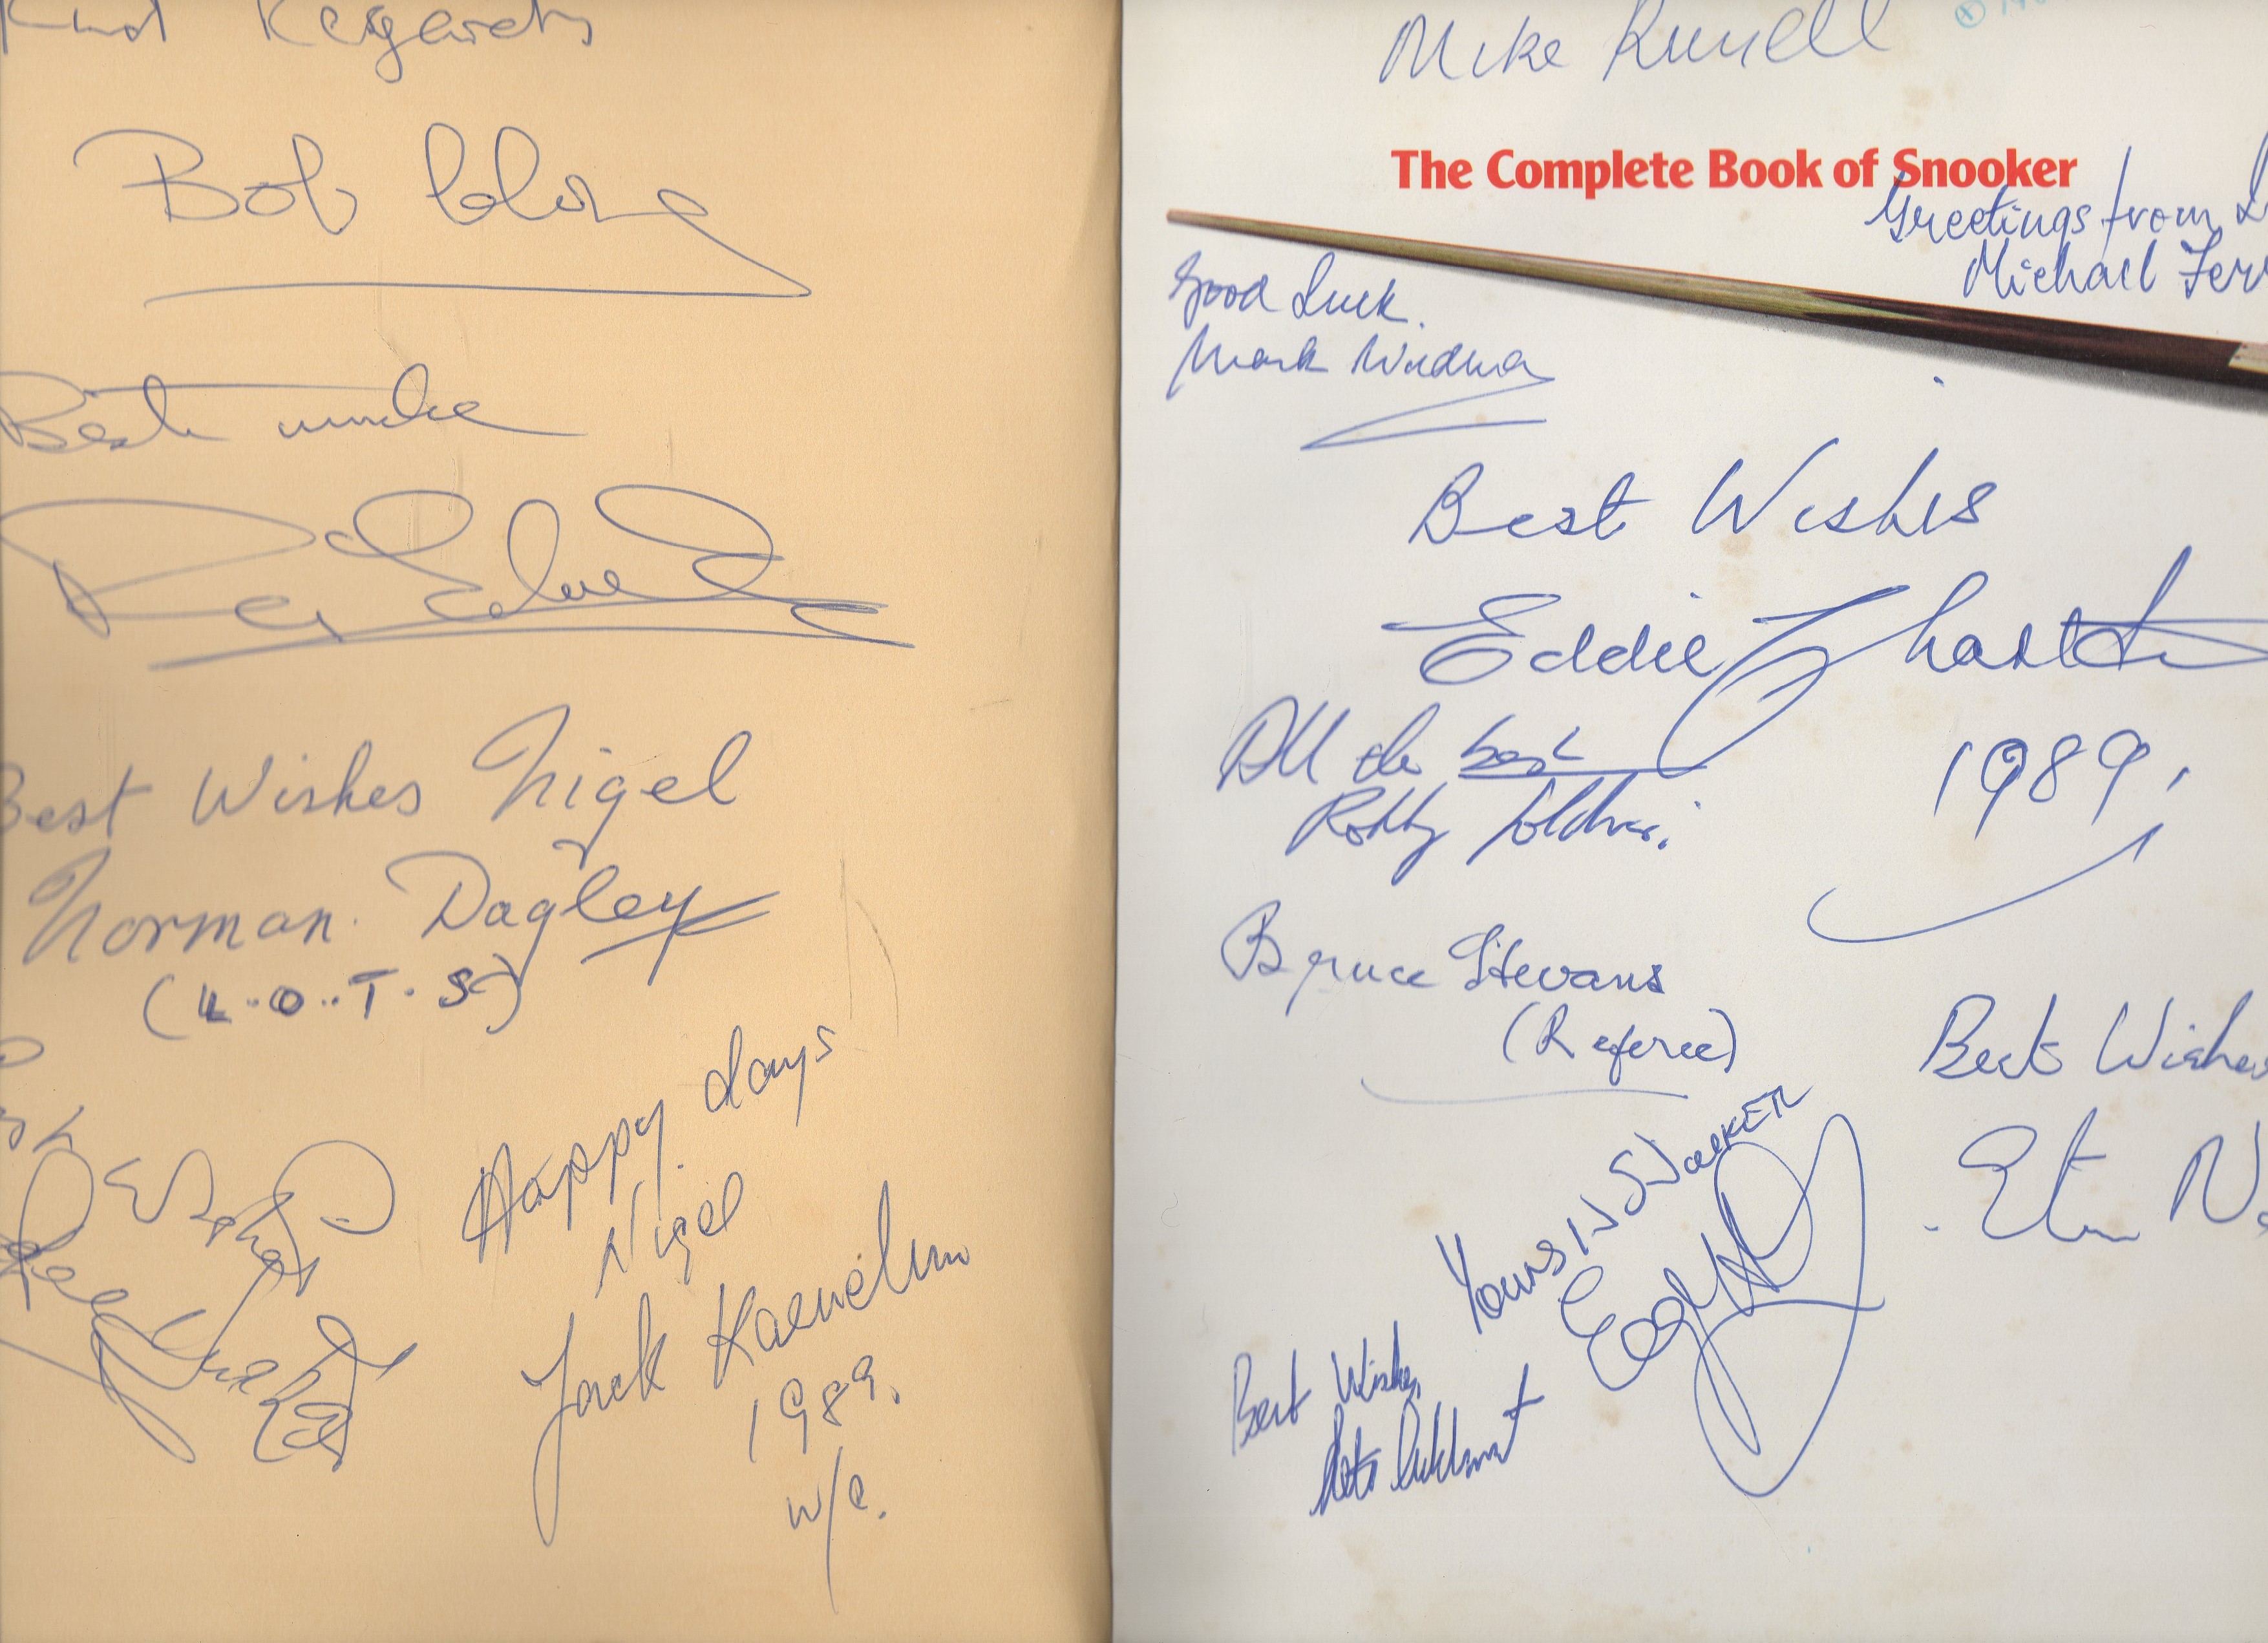 Kind Regards
Bob Close
Best wishes
Rex
Best Wishes Nigel
Norman. Dagley
(L.O.T.S)
Happy days
Nigel
Jack Karnehm
1989.
w/c.
Mike Russell
The Complete Book of Snooker
Greetings from
Michael Fer
Good Luck.
Mark Wildman
Best Wishes
Eddie Charlton
1989.
All the best
Robby Foldvari.
Bruce Stevans
(Referee)
Best Wishes
Yours in Snooker
Best Wishes